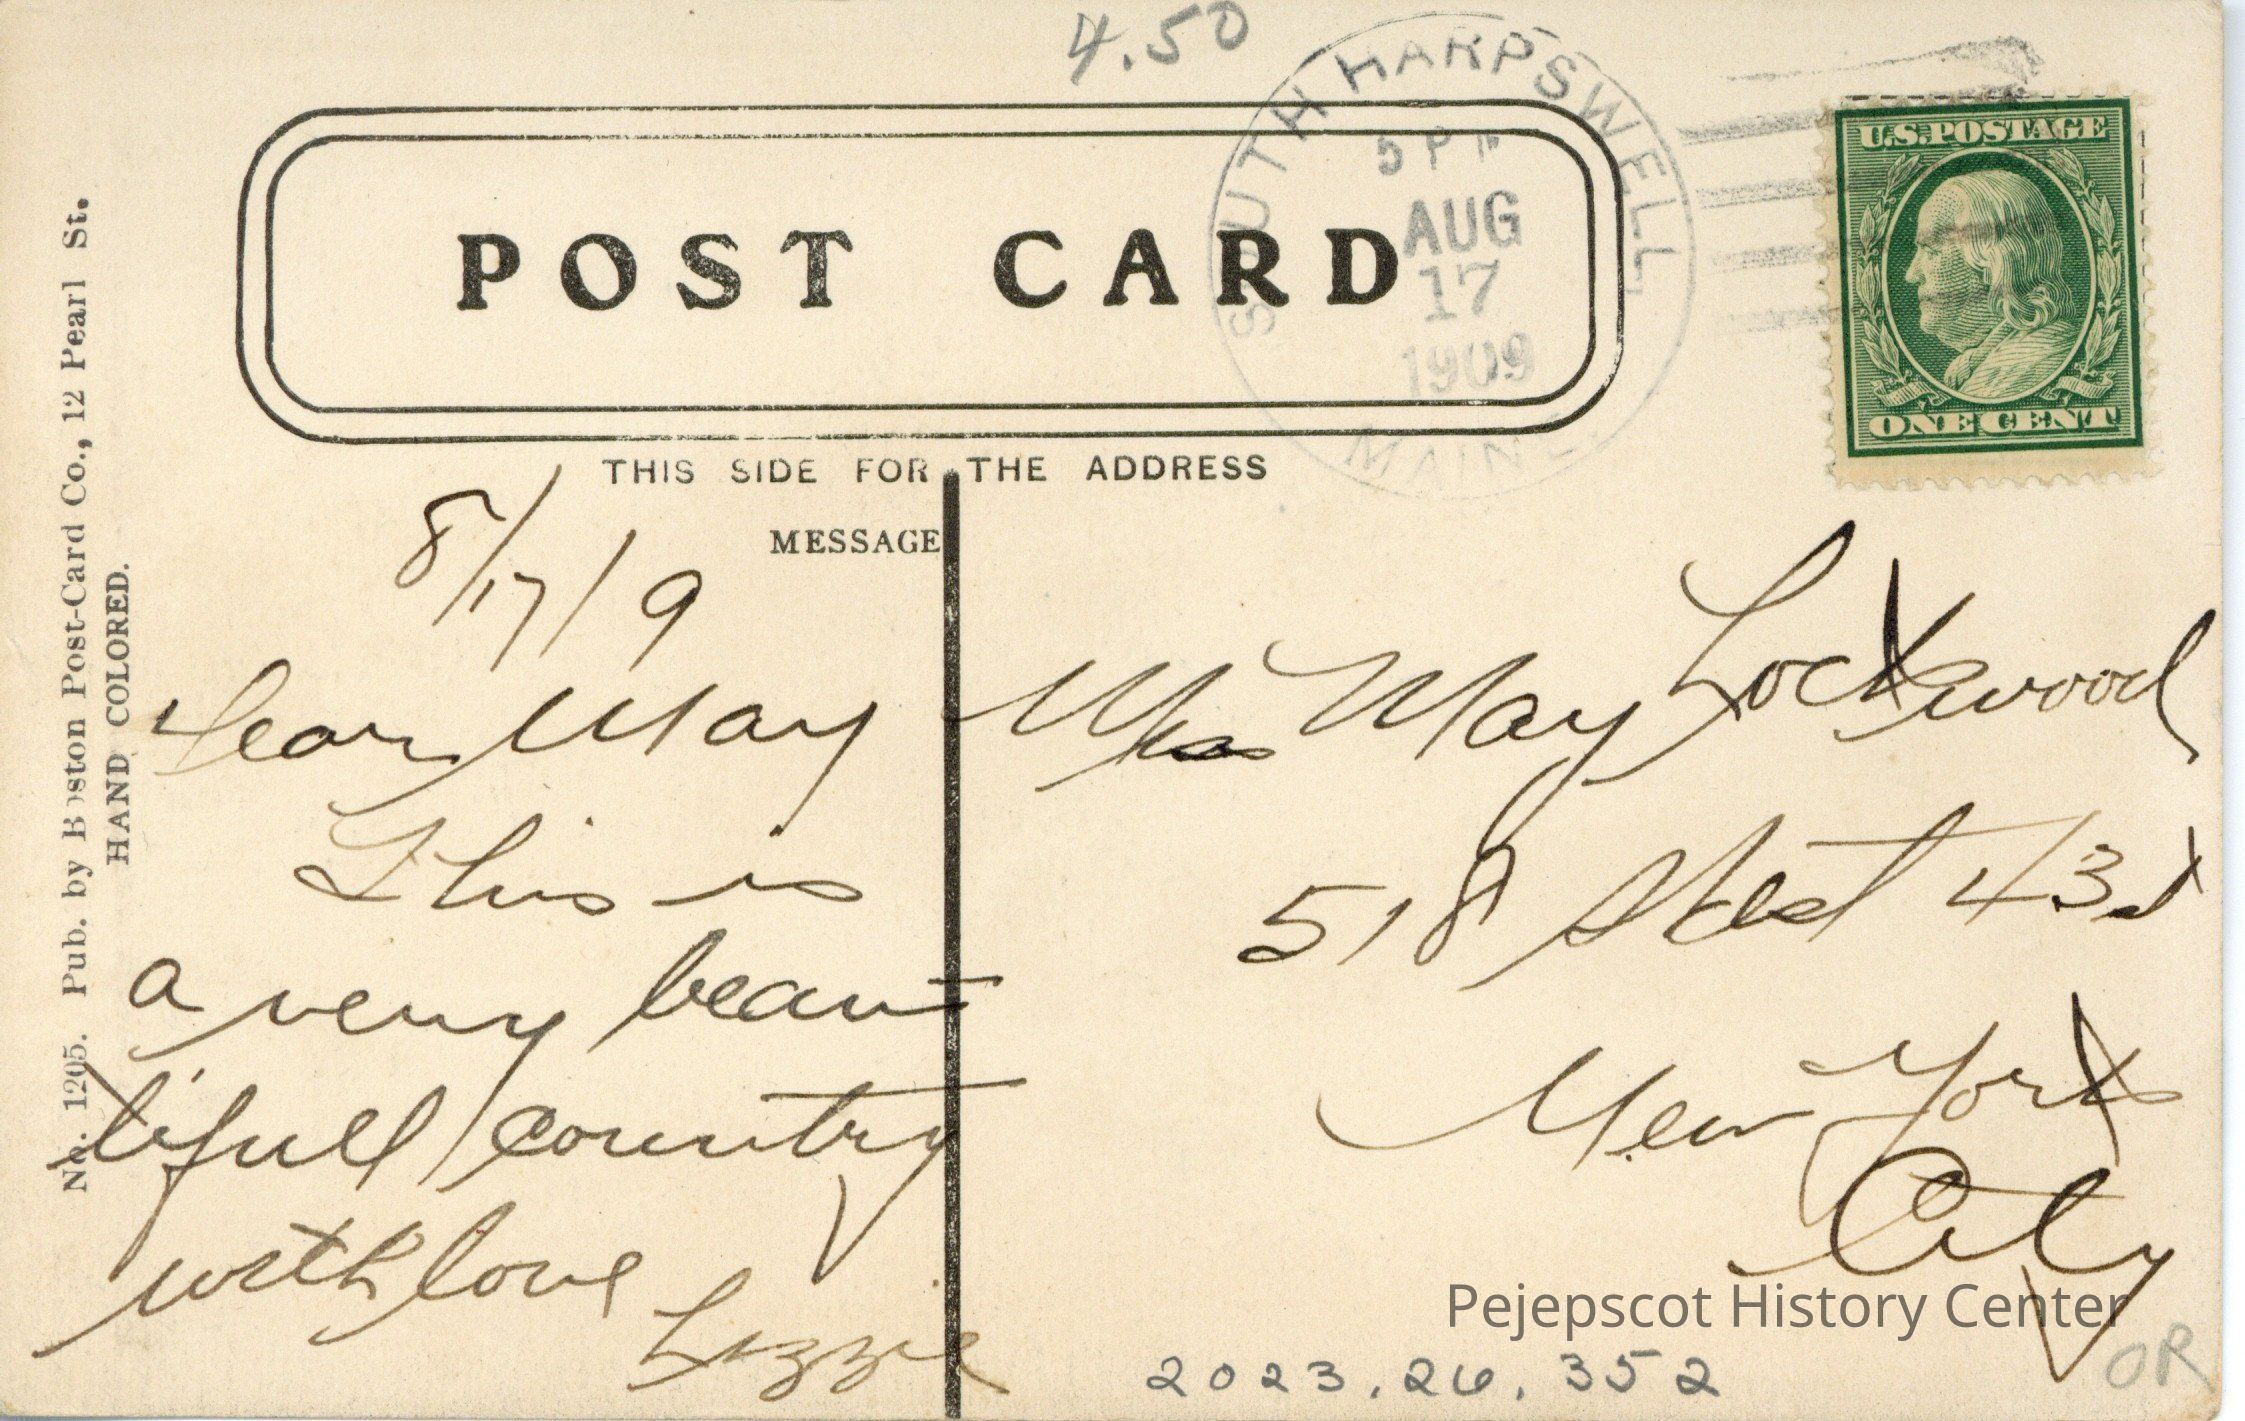 4.50
SOUTH HARPSWELL
5 PM
AUG
17
1909
MAINE
U.S. POSTAGE
ONE CENT
POST CARD
THIS SIDE FOR THE ADDRESS
MESSAGE
No. 1205. Pub. by Boston Post-Card Co., 12 Pearl St.
HAND COLORED.
8/17/9
Dear May
This is
a very beau=
tifull country
with love
Lizzie
Miss May Lockwood
518 West 43d
New York
City
Pejepscot History Center
2023.26.352
OR